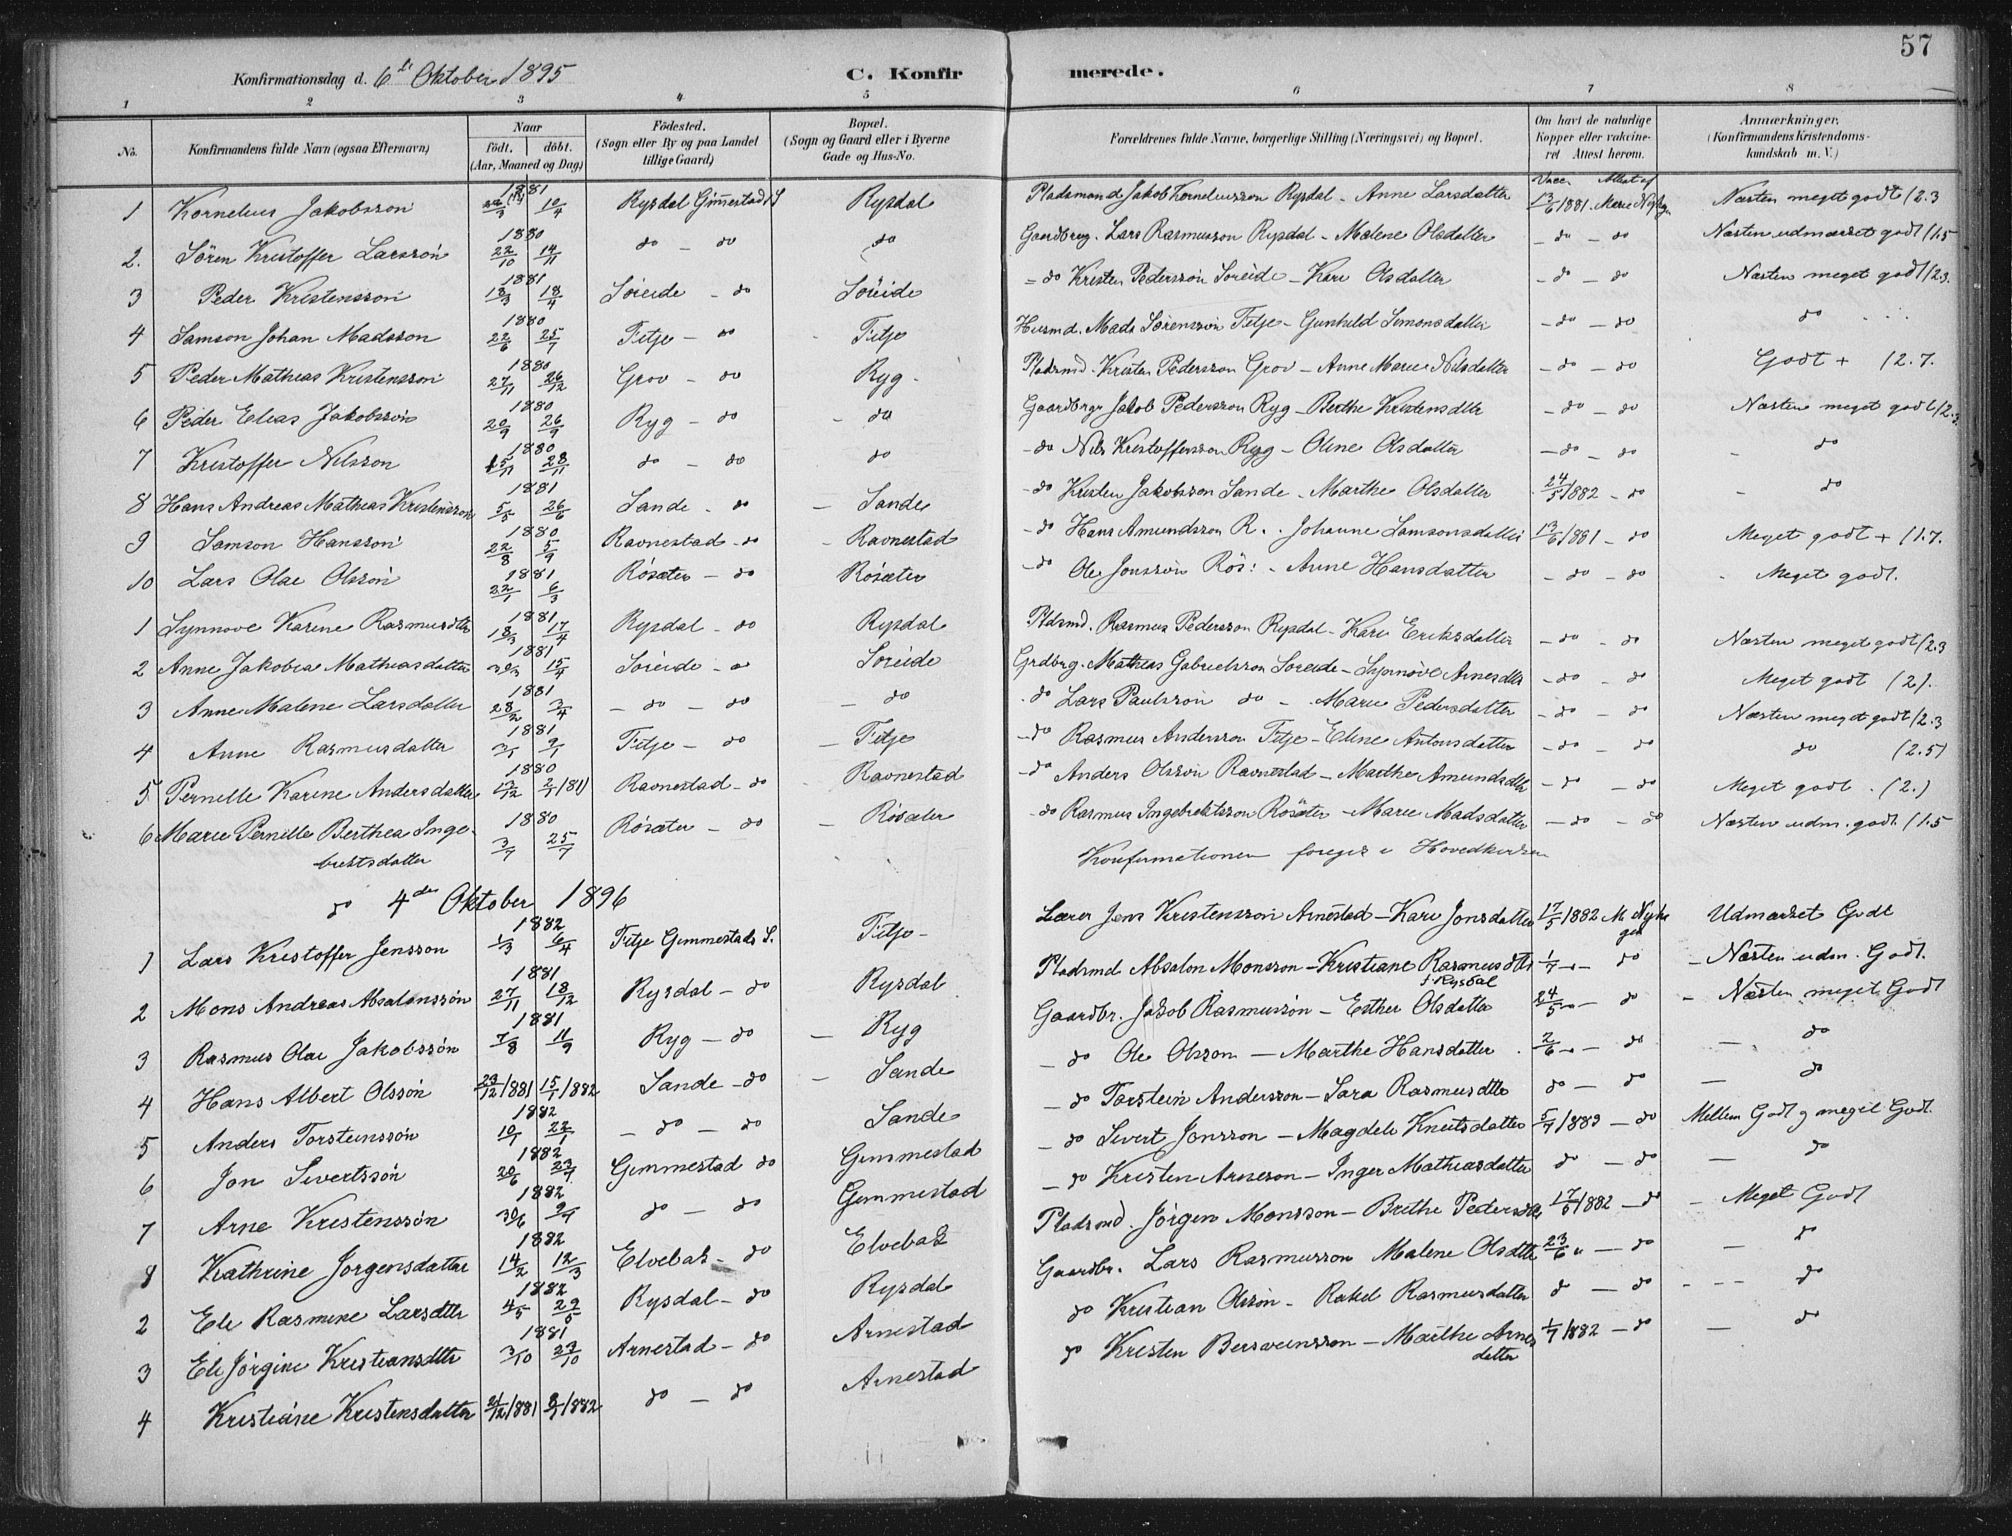 57
Konfirmationsdag d. 6te Oktober 1895 C. Konfirmerede.
1 2 3 4 5 6 7 8
No. Konfirmandens fulde Navn (ogsaa Efternavn) Naar født. døbt. (Aar, Maaned og Dag) Fødested. (Sogn eller By og paa Landet tillige Gaard) Bopæl. (Sogn og Gaard eller i Byerne Gade og Hus-No. Forældrenes fulde Navne, borgerlige Stilling (Næringsvei) og Bopæl. Om havt de naturlige Kopper eller vakcineret Attest herom. Anmærkninger. (Konfirmandens Kristendomskundskab m. V.)
1 Kornelius Jakobsson 1881 10/4 Rysdal Gimmestad S Rysdal Pladsmand Jakob Korneliusson Rysdal - Anne Larsdatter 13/6 1881 Næsten meget godt (2.3
2. Sören Kristoffer Larssön 1880 22/10 14/11 do - do do Gaardbrug. Lars Rasmusson Rysdal - Malene Olsdatter - do - do Næsten udmærket godt (1.5
3 Peder Kristensson 1881 18/3 18/4 Söreide - do Söreide - do Kristen Pedersson Söreide - Kari Olsdatter - do - do Næsten meget godt (2.3.
4 Samson Johan Madsson 1880 22/6 25/7 Fitje - do Fitje Husmd. Mads Sörensson Fitje - Gunhild Simonsdatter - do - do do
5 Peder Mathias Kristensson 1880 27/11 26/12 Grov - do Ryg - Pladsmd. Kristen Pedersson Grov - Anne Marie Nilsdatter - do - do Godt + (2.7.
6 Peder Elias Jakobsson 1880 20/9 26/9 Ryg - do - do Gaardbrgr Jakob Pedersson Ryg - Berthe Kristensdtter - do - do Næsten meget godt (2.3
7 Kristoffer Nilsson 1880 15/11 28/11 do - do do - do Nils Kristoffersson Ryg - Oline Olsdatter - do - do - do
8 Hans Andreas Mathias Kristensson 1881 5/5 26/6 Sande - do - Sande - do Kristen Jakobsson Sande - Marthe Olsdatter 24/5 1882 - do - do
9 Samson Hansson 1880 22/8 5/9 Ravnestad - do - Ravnestad - do Hans Amundsson R. - Johanne Samsonsdatter 13/6 1881 - do Meget godt + (1.7.
10 Lars Olai Olssön 1881 22/1 6/3 Rösæter - do Rösæter - do Ole Jonssön Rös: - Anne Hansdatter - do - do - Meget godt.
1 Synnove Karine Rasmusdtter 1881 18/3 17/4 Rysdal - do Rysdal Pldsmd. Rasmus Pedersson Rysdal - Kari Eriksdatter - do - do Næsten meget godt (2.3
2 Anne Jakobea Mathiasdatter 1881 15/4 Söreide - do Söreide Grdbrg. Mathias Gabrielsson Söreide - Synnöve Arnesdtter - do - do Meget godt (2).
3 Anne Malene Larsdatter 1881 28/2 3/4 - do - do - do - do Lars Paulsson do - Marie Pedersdatter - do - do Næsten meget godt (2.3
4 Anne Rasmusdatter 1881 3/1 9/1 Fitje - do - Fitje - do Rasmus Andersson Fitje - Eline Antonsdatter - do - do do (2.5)
5 Pernille Karine Andersdatter 1880 2/1 1881 Ravnestad - do Ravnestad - do Anders Olsson Ravnestad - Marthe Amundsdtter - do - do Meget godt. (2.)
6 Marie Pernille Berthea Ingebrektsdatter 1880 3/7 25/7 Rösæter - do - Rösæter - do Rasmus Ingebrektsson Rösæter - Marie Madsdatter - do - do Næsten udm. godt. (1.5
Konfirmationen foregik i Hovedkirken
do 4de Oktober 1896
1 Lars Kristoffer Jensson 1882 1/3 6/4 Fitje Gimmestads S. Fitje - Lærer Jens Kristensson Arnestad - Kari Jonsdatter 17/5 1882 M Nyhagen Udmærket Godt
2 Mons Andreas Absalonssön 1881 27/11 18/12 Rysdal - do Rysdal Pladsmd Absalon Monsson - Kristiane Rasmusdtt Rysdal 1/7 - do - Næsten udm. Godt.
3 Rasmus Olai Jakobssön 1881 7/8 11/9 Ryg - do - Ryg Gaardbr. Jakob Rasmussön - Esther Olsdatter 24/5 - do - Næsten meget Godt
4 Hans Albert Olssön 23/12 1881 15/1 1882 Sande - do - Sande - do Ole Olsson - Marthe Hansdatter 2/6 - do - do
5 Anders Torsteinssön 1882 10/1 22/1 - do - do Sande - do Torstein Andersson - Sara Rasmusdtter do - do - do
6 Jon Sivertssön 1882 20/6 23/7 Gimmestad do Gimmestad - do Sivert Jonsson - Magdeli Knutsdatter 5/7 1883 - do Mellem Godt og meget Godt.
7 Arne Kristenssön 1882 30/6 9/7 do - do Gimmestad - do Kristen Arneson - Inger Mathiasdatter do - do - do
8 Kathrine Jörgensdatter 1882 14/2 12/3 Elvebak - do Elvebak Pladsmd. Jörgen Monsson - Brithe Pedersdtter 17/5 1882 - do - Meget Godt
2 Eli Rasmine Larsdtter 1882 4/5 29/5 Rysdal - do Rysdal Gaardbr. Lars Rasmusson Malene Olsdtter 23/6 - do - do
3 Eli Jörgine Kristiansdtter 1881 3/10 23/10 Arnestad - do Arnestad do Kristian Olssön - Rakel Rasmusdatter do - do - do
4 Kristiane Kristensdatter 21/12 1881 8/1 1882 do - do Arnestad do Kristen Bersveinsson - Marthe Arnesdatter 1/7 1882 - do - do